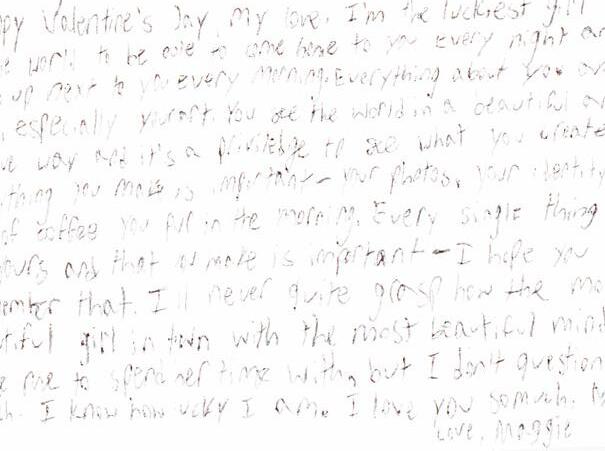 ppy Valentine's Day, my love. I'm the luckiest girl
e world to be able to come home to you every night an
up next to you every morning. Everything about you ar
, especially your art. You see the world in a beautiful an
ve way and it's a priviledge to see what you create
ything you make is important - your photos, your identity
of coffee you put in the morning. Every single thing
yours and that you make is important - I hope you
ember that. I'll never quite grasp how the mo
utiful girl in town with the most beautiful mind
e me to spend her time with, but I don't question
ch. I know how ucky I am. I love you so much.
Love, Maggie